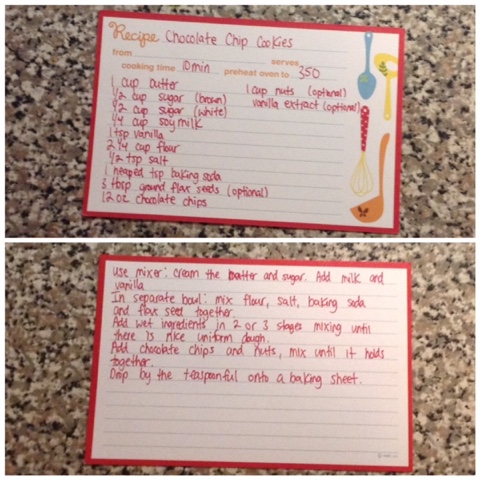 Recipe Chocolate Chip Cookies
from serves
cooking time 10min preheat oven to 350
1 cup butter
1/2 cup sugar (brown)
1/2 cup sugar (white)
1/4 cup soy milk
1 tsp vanilla
2 1/4 cup flour
1/2 tsp salt
1 heaped tsp baking soda
3 tbsp ground flax seeds (optional)
12 oz chocolate chips
1 cup nuts (optional)
vanilla extract (optional)
Use mixer: cream the butter and sugar. Add milk and
vanilla
In separate bowl: mix flour, salt, baking soda
and flax seed together.
Add wet ingredients in 2 or 3 stages mixing until
there is nice uniform dough.
Add chocolate chips and nuts, mix until it holds
together.
Drop by the teaspoonful onto a baking sheet.